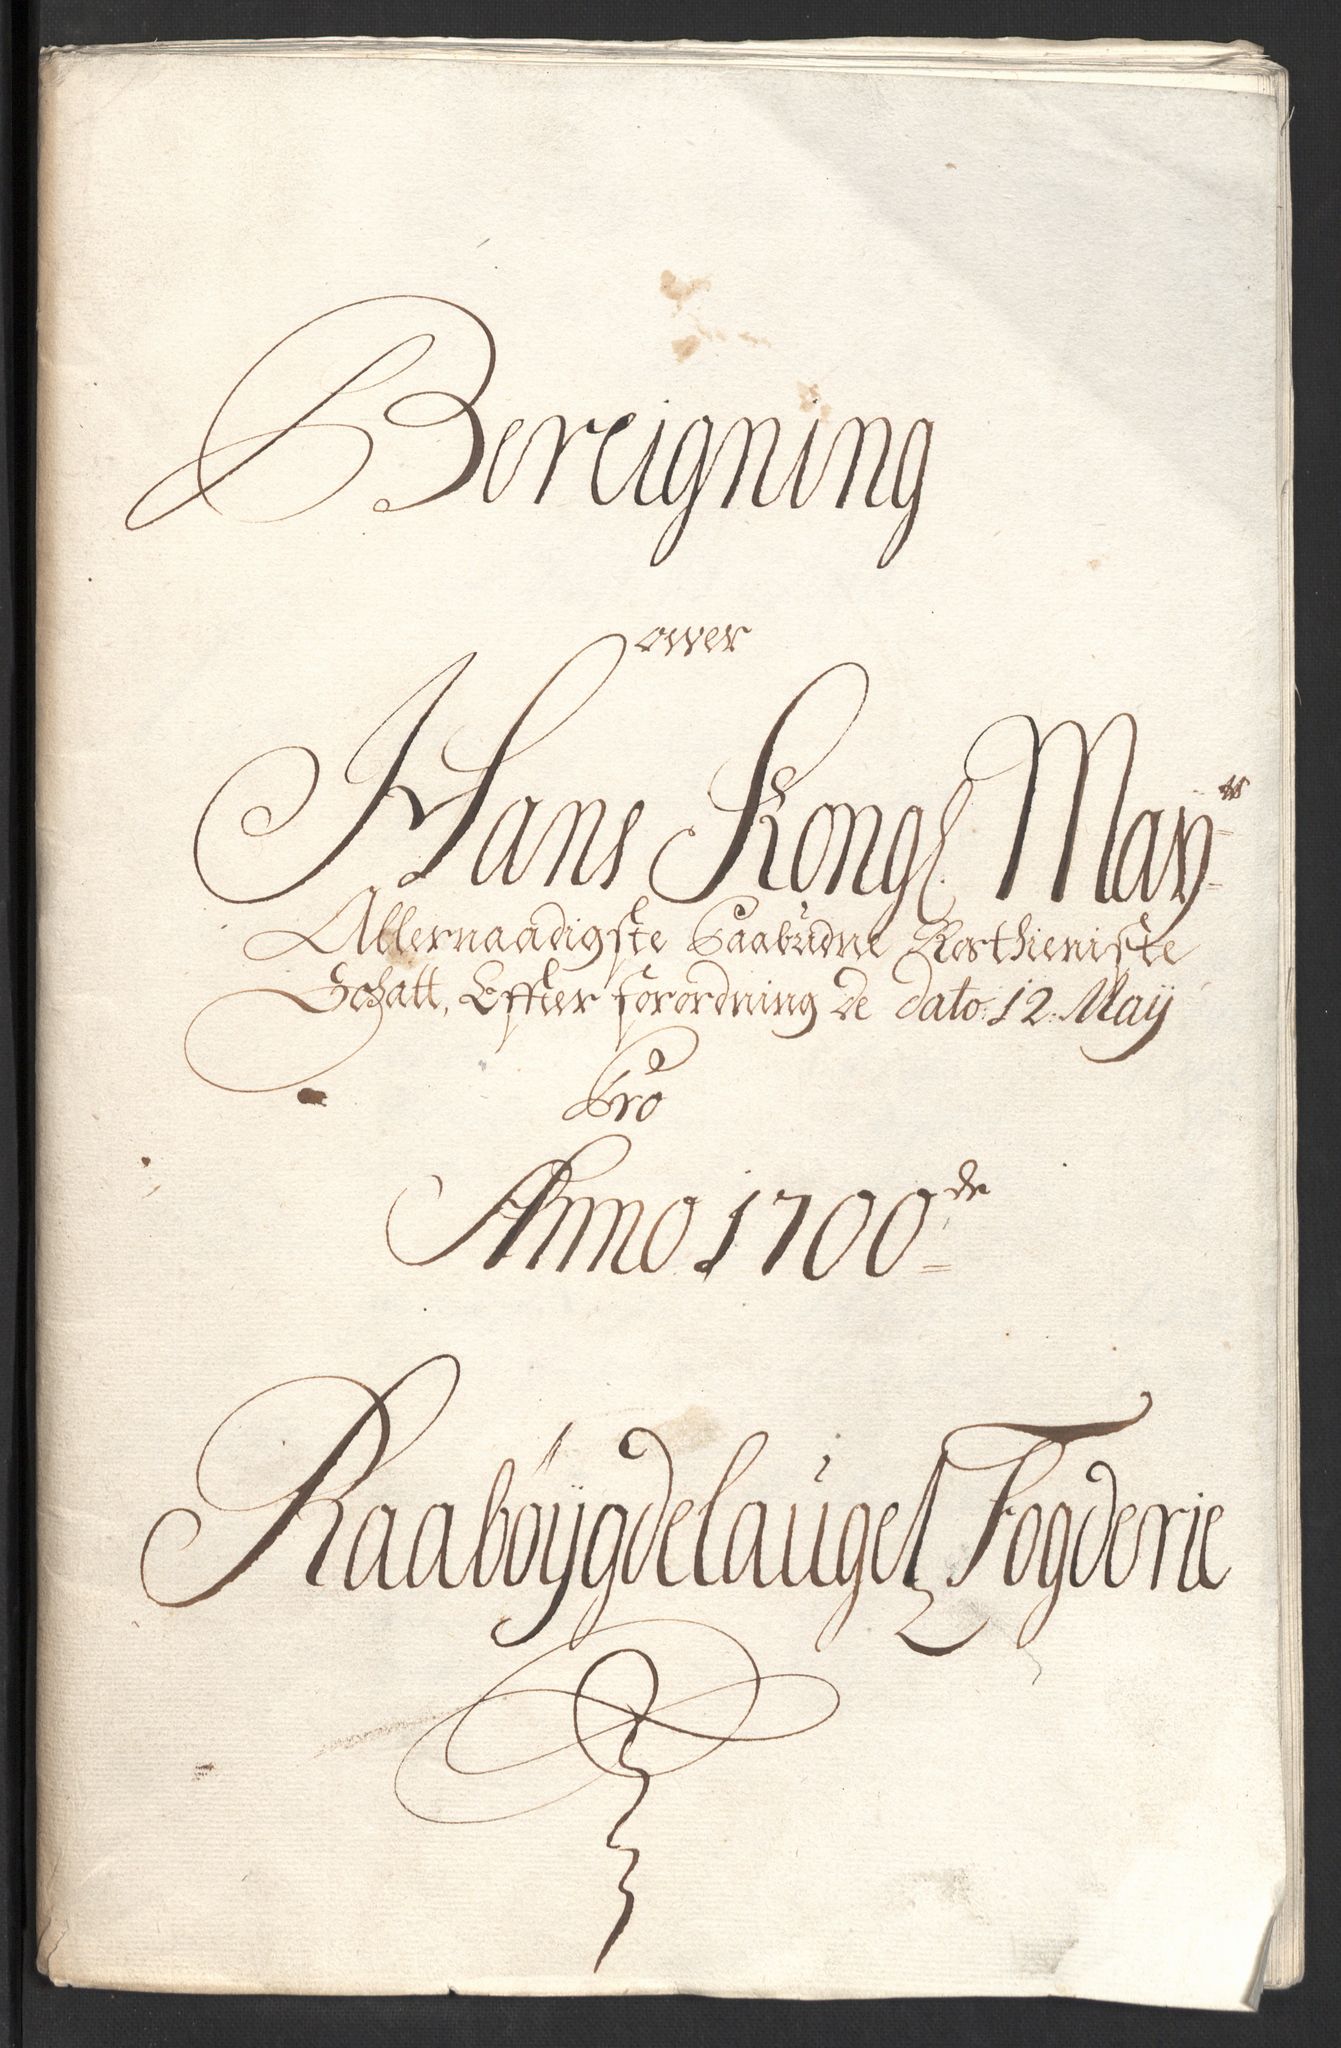 Bereigning
over
Hans Kongl Mayts
Allernaadigste Paabudne Rosthieniste
Schatt, Effter forordning de dato: 12: Maij
Pro
Anno 1700de
Raabøijgdelauget Fogderie